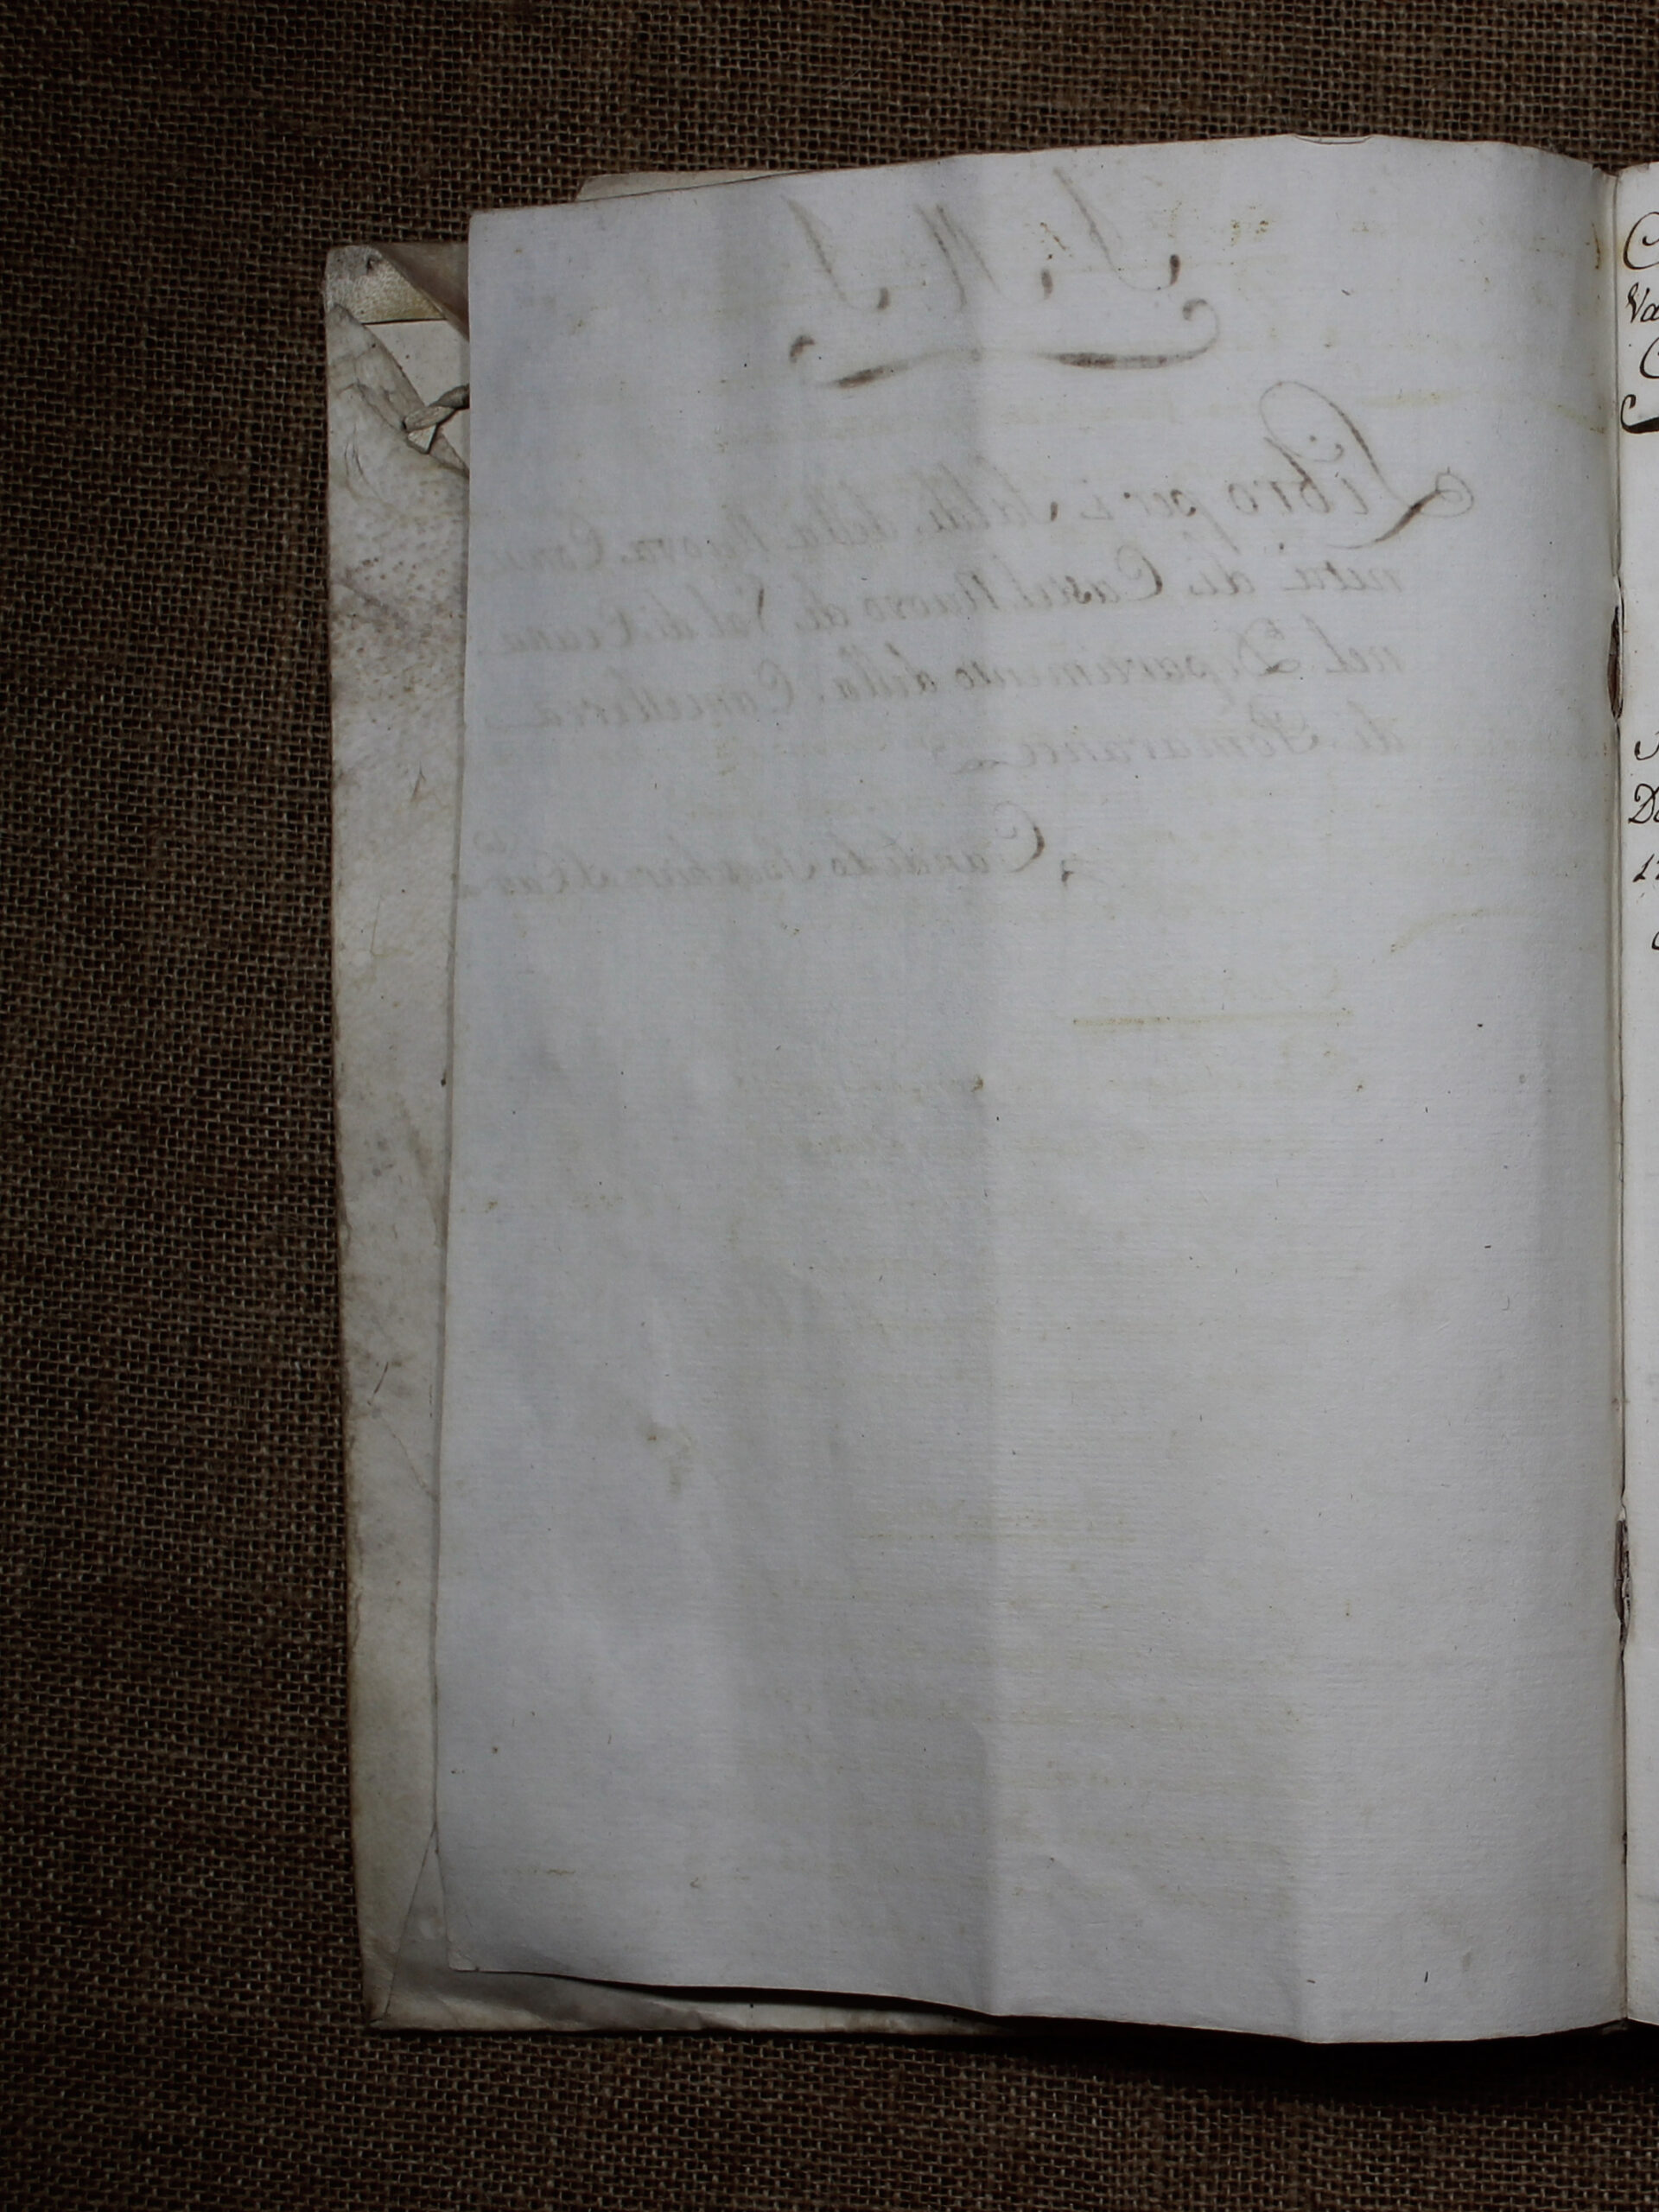 J. M. J.
Libro per i Saldi della Nuova Comu
nità di Castel Nuovo di Val di Cecina
nel Dipartimento della Cancelleria
di Pomarance
Candido
C
Va
C
De